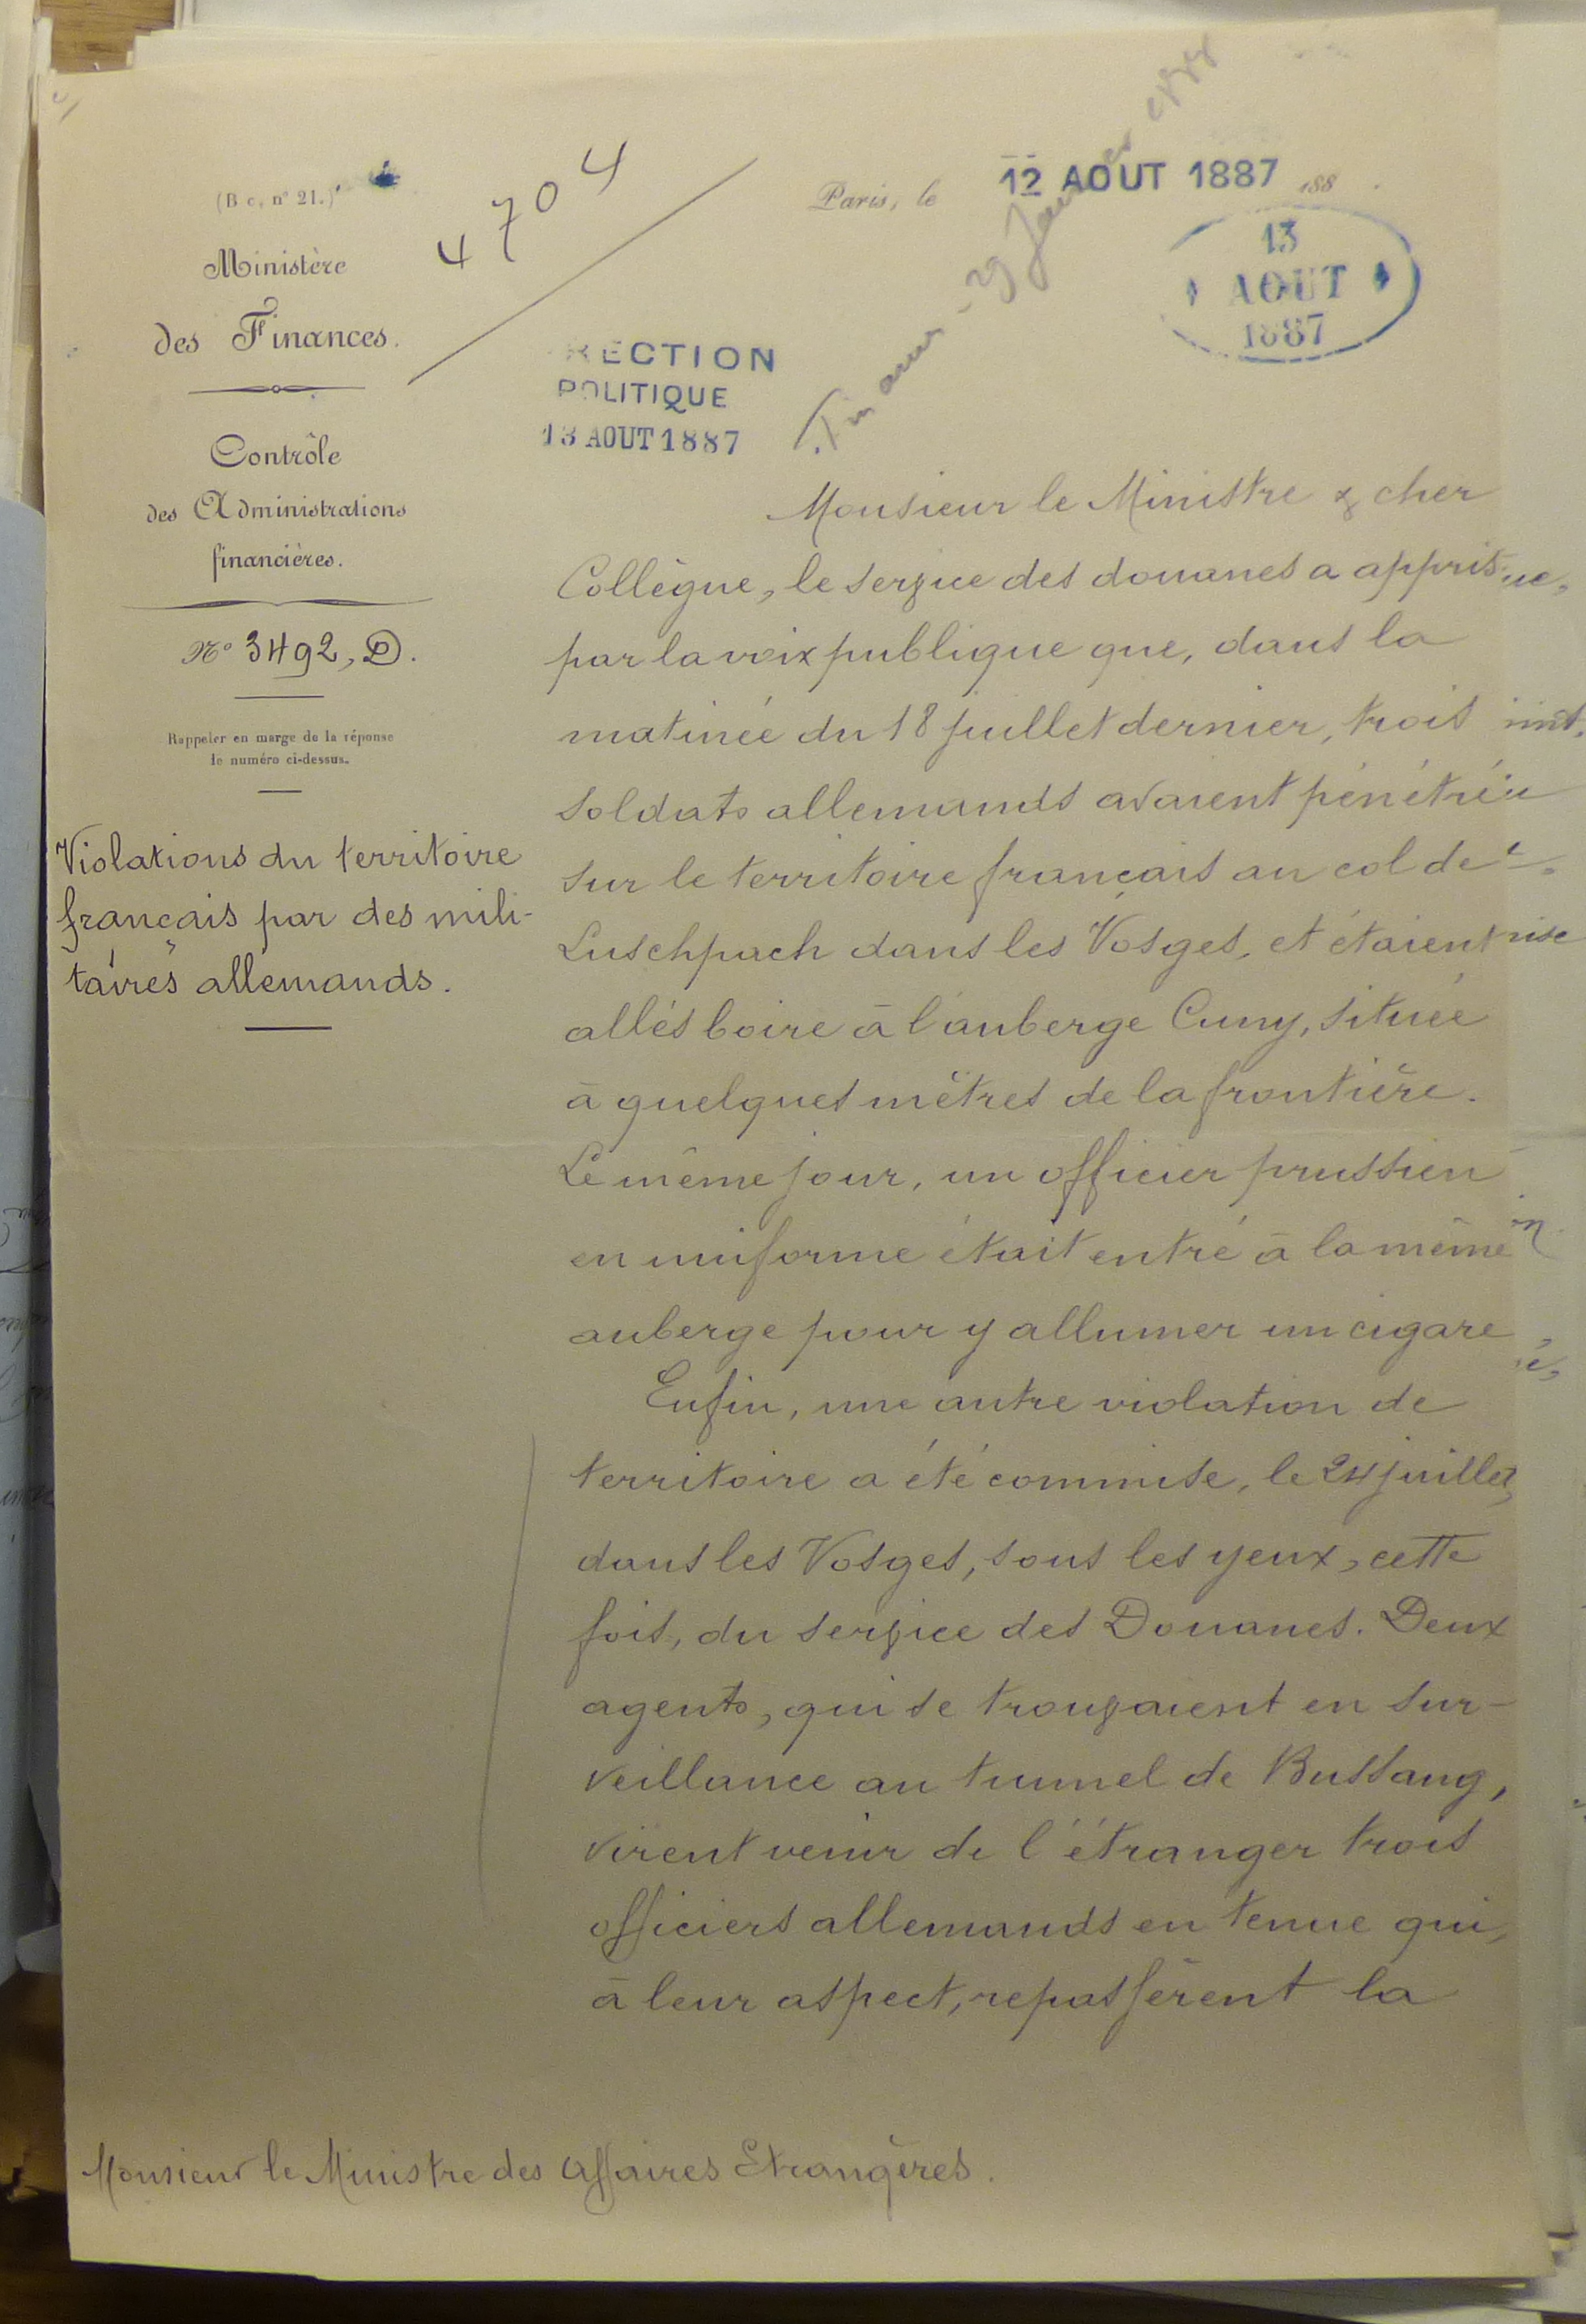 (B c, n° 21.)
Ministère
des Finances.
Contrôle
des Administrations
financières.
N° 3492, D.
Rappeler en marge de la réponse
le numéro ci-dessus.
Violations du territoire
français par des mili-
taires allemands.
4704
Paris, le 12 AOUT 1887 188
13
AOUT
1887
RECTION
POLITIQUE
13 AOUT 1887
29 Janvier
Monsieur le Ministre & cher
Collègue, le service des douanes a appris
par la voix publique que, dans la
matinée du 18 juillet dernier, trois
soldats allemands avaient pénétré
sur le territoire français au col de
Luschpach dans les Vosges, et étaient
allés boire à l'auberge Cuny, située
à quelques mètres de la frontière.
Le même jour, un officier prussien
en uniforme était entré à la même
auberge pour y allumer un cigare
Enfin, une autre violation de
territoire a été commise, le 24 juillet,
dans les Vosges, sous les yeux, cette
fois, du service des Douanes. Deux
agents, qui se trouvaient en sur-
veillance au tunnel de Bussang,
virent venir de l'étranger trois
officiers allemands en tenue qui,
à leur aspect, repassèrent la
Monsieur le Ministre des Affaires Etrangères.